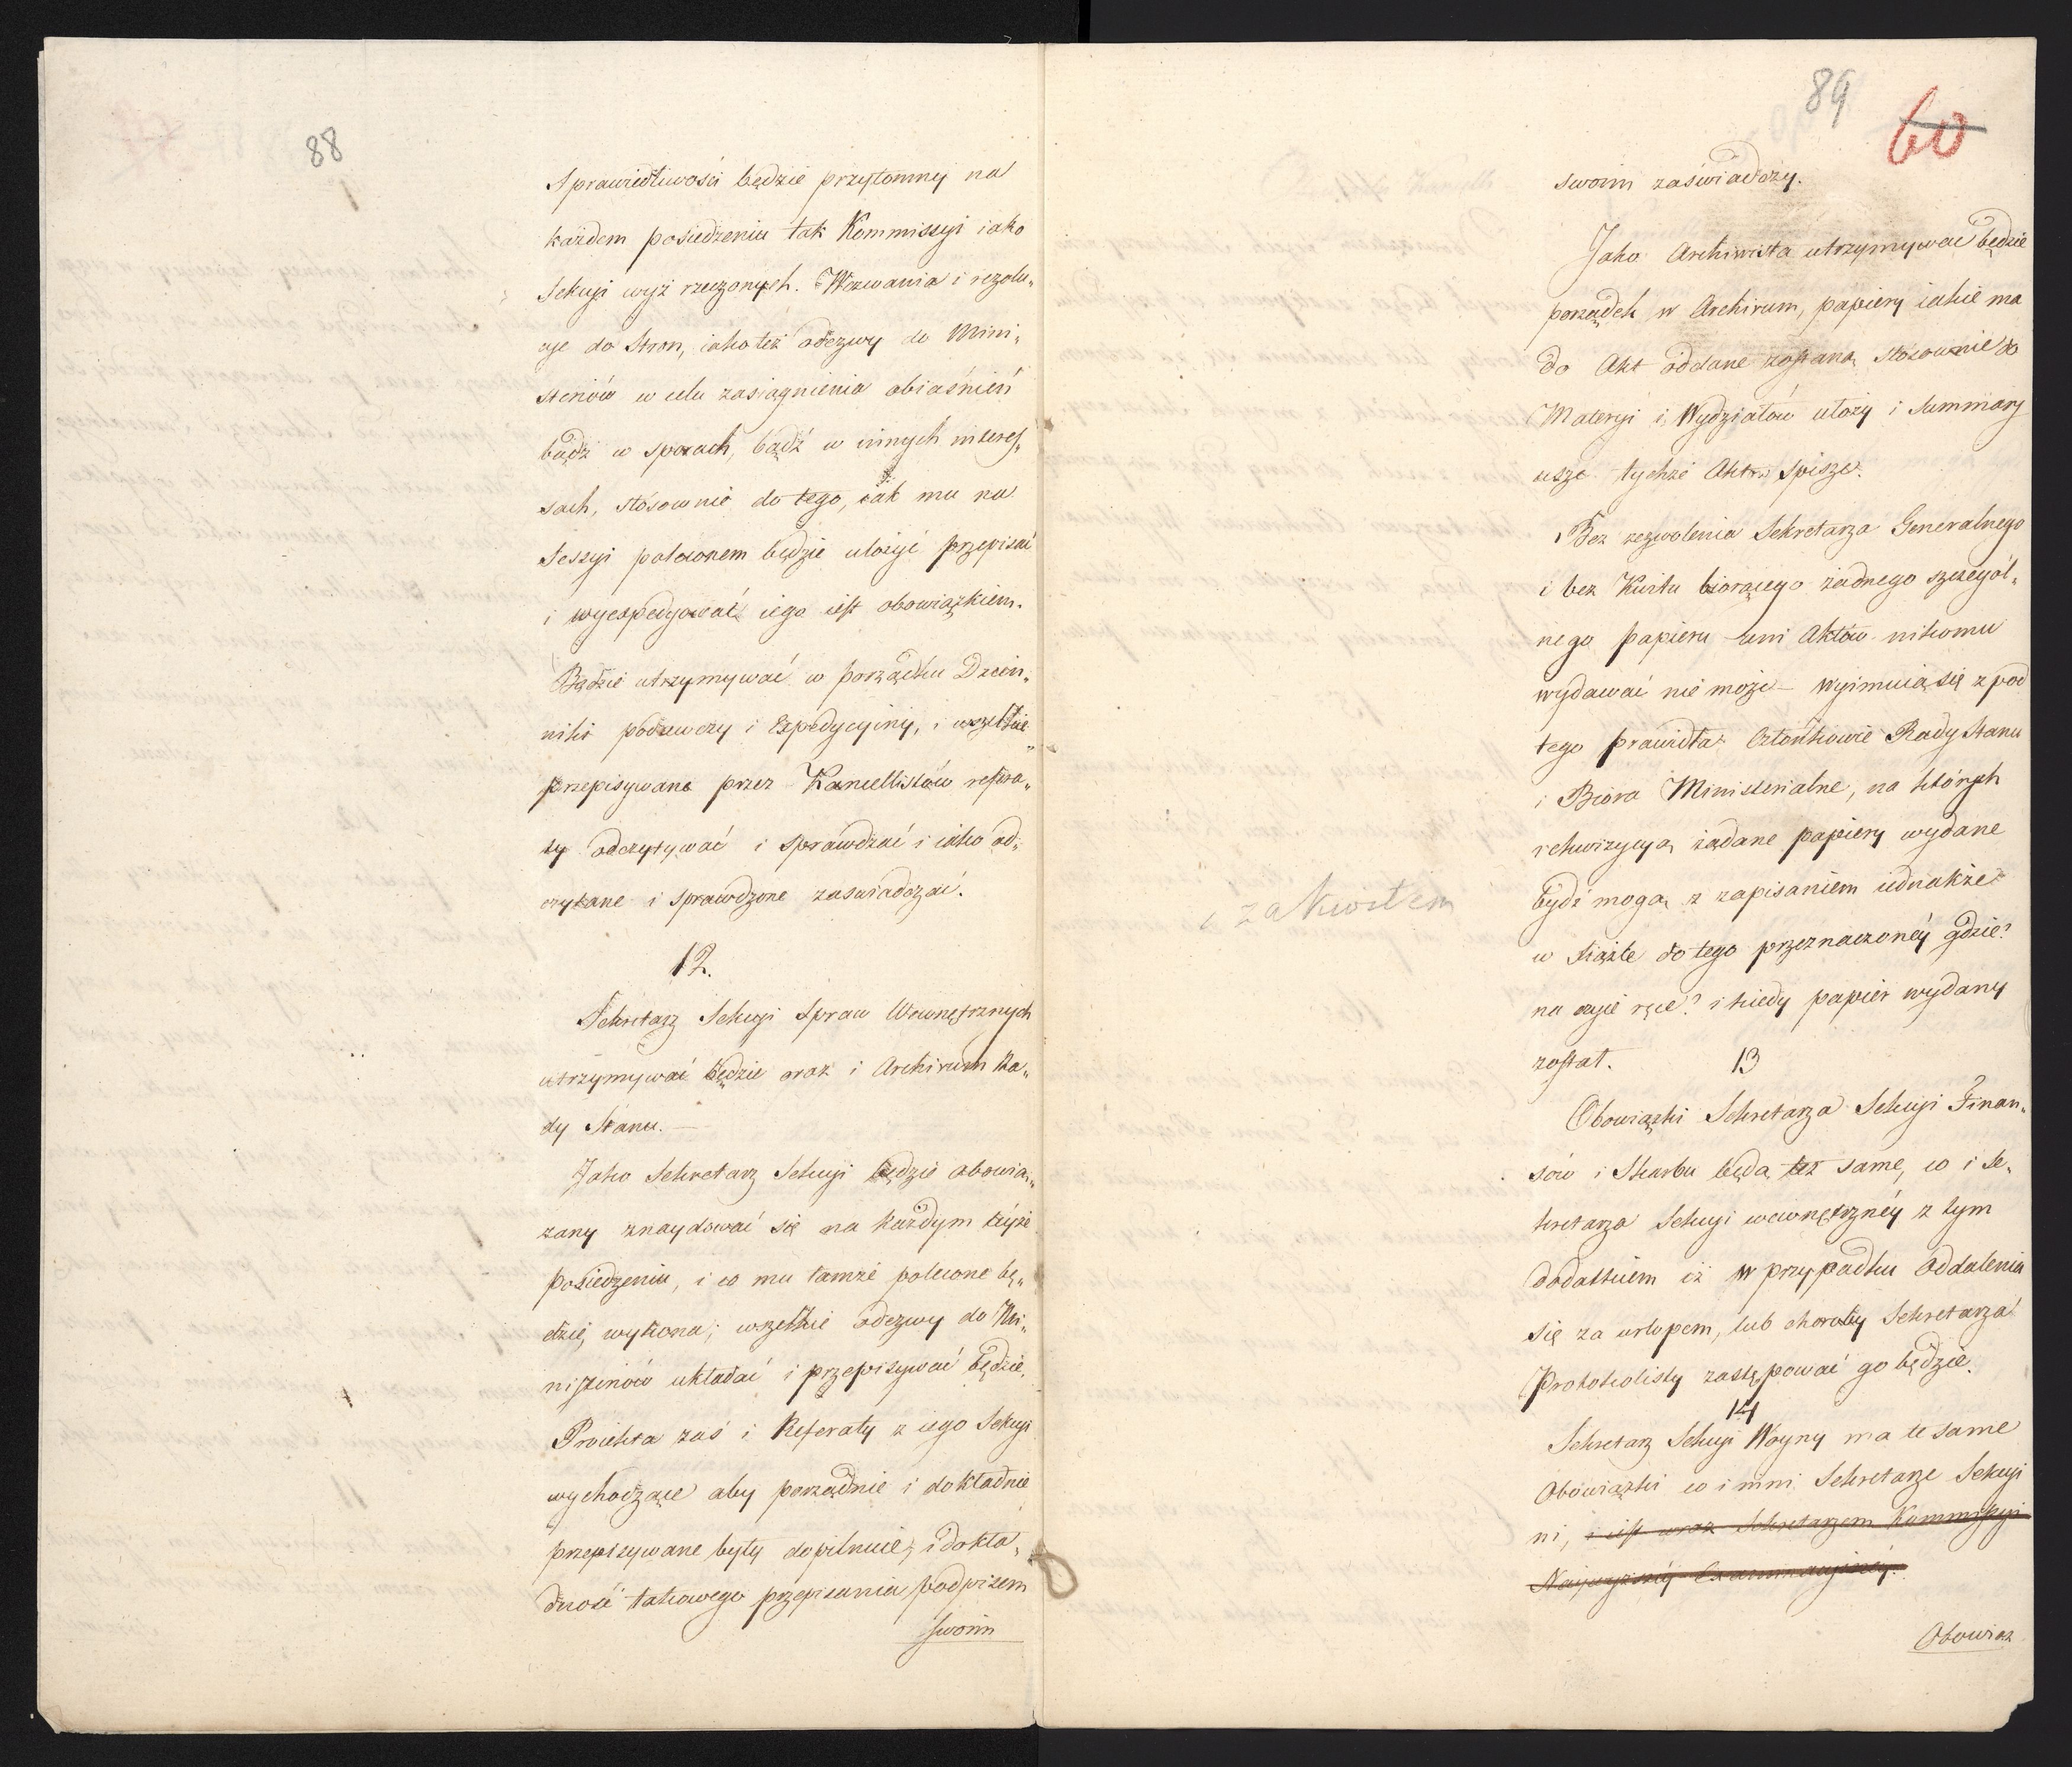 88
Sprawiedliwości będzie przytomny na
każdem posiedzeniu tak Kommissyi iako
Sekcyi wyż rzeczonych. Wezwania i rezolu„
cye do Stron, iako też odezwy do Mini„
sterıów w celu zasiągnienia obiaśnień
bądź w sporach, bądź w innych interes„
sach, stósownie do tego, iak mu na
Sessyi poleconem będzie ułożyć przepisać
i wyexpedyować iego iest obowiązkiem.
Będzie utrzymywać w porządku Dzien„
niki podawczy i Expedycyiny, i wszelkie
przepisywane przez Kancellistów refera„
ty odczytywać i sprawdzać i iako od„
czytane i sprawdzone zaświadczać.
12.
Sekretarz Sekcyi Spraw Wewnętrznych
utrzymywać będzie oraz i Archivum Ra„
dy Stanu. —
Jako Sekretarz Sekcyi będzie obowią„
zany znaydować się na każdym téyże
posiedzeniu, i co mu tamże polecone bę„
dzie, wykona; wszelkie odezwy do Mi„
nistrów układać i przepisywać będzie.
Proiekta zaś i Referaty z iego Sekcyi
wychodzące aby porządnie i dokładnie
przepisywane były dopilnuie, i dokła„
dność takowego przepisania podpisem
swoim
89
60
swoim zaświadczy.
Jako Archiwista utrzymywać będzie
porządek w Archivum, papiery iakie ma
do Akt oddane zostaną stósownie do
Materyi i Wydziałów ułoży i Summary
usze tychże Aktów spisze.
Bez zezwolenia Sekretarza Generalnego
i bez Kwitu biorącego żadnego szczegól„
nego papieru ani Aktów nikomu
wydawać nie może — wyimuią się z pod
tego prawidła Członkowie Rady Stanu
i Biora Ministerialne, na których
rekwizycyą żądane papiery wydane
bydź mogą z zapisaniem iednakże
i za kwitem
w Xiążke do tego przeznaczonéy gdzie?
na czyie ręce? i kiedy papier wydany
został.
13
Obowiązki Sekretarza Sekcyi Finan„
sów i Skarbu będą też same, co i Se„
kretarza Sekcyi wewnętrznéy z tym
dodatkiem iż w przypadku oddalenia
się za urlopem, lub choroby Sekretarza
Protokolisty zastępować go będzie.
14
Sekretarz Sekcyi Woyny ma te same
Obowiązki co i inni Sekretarze Sekcyi
ni, i iest oraz Sekretarzem Kommissyi
Naywyższéy Examinacyinéy.
Obowiąz